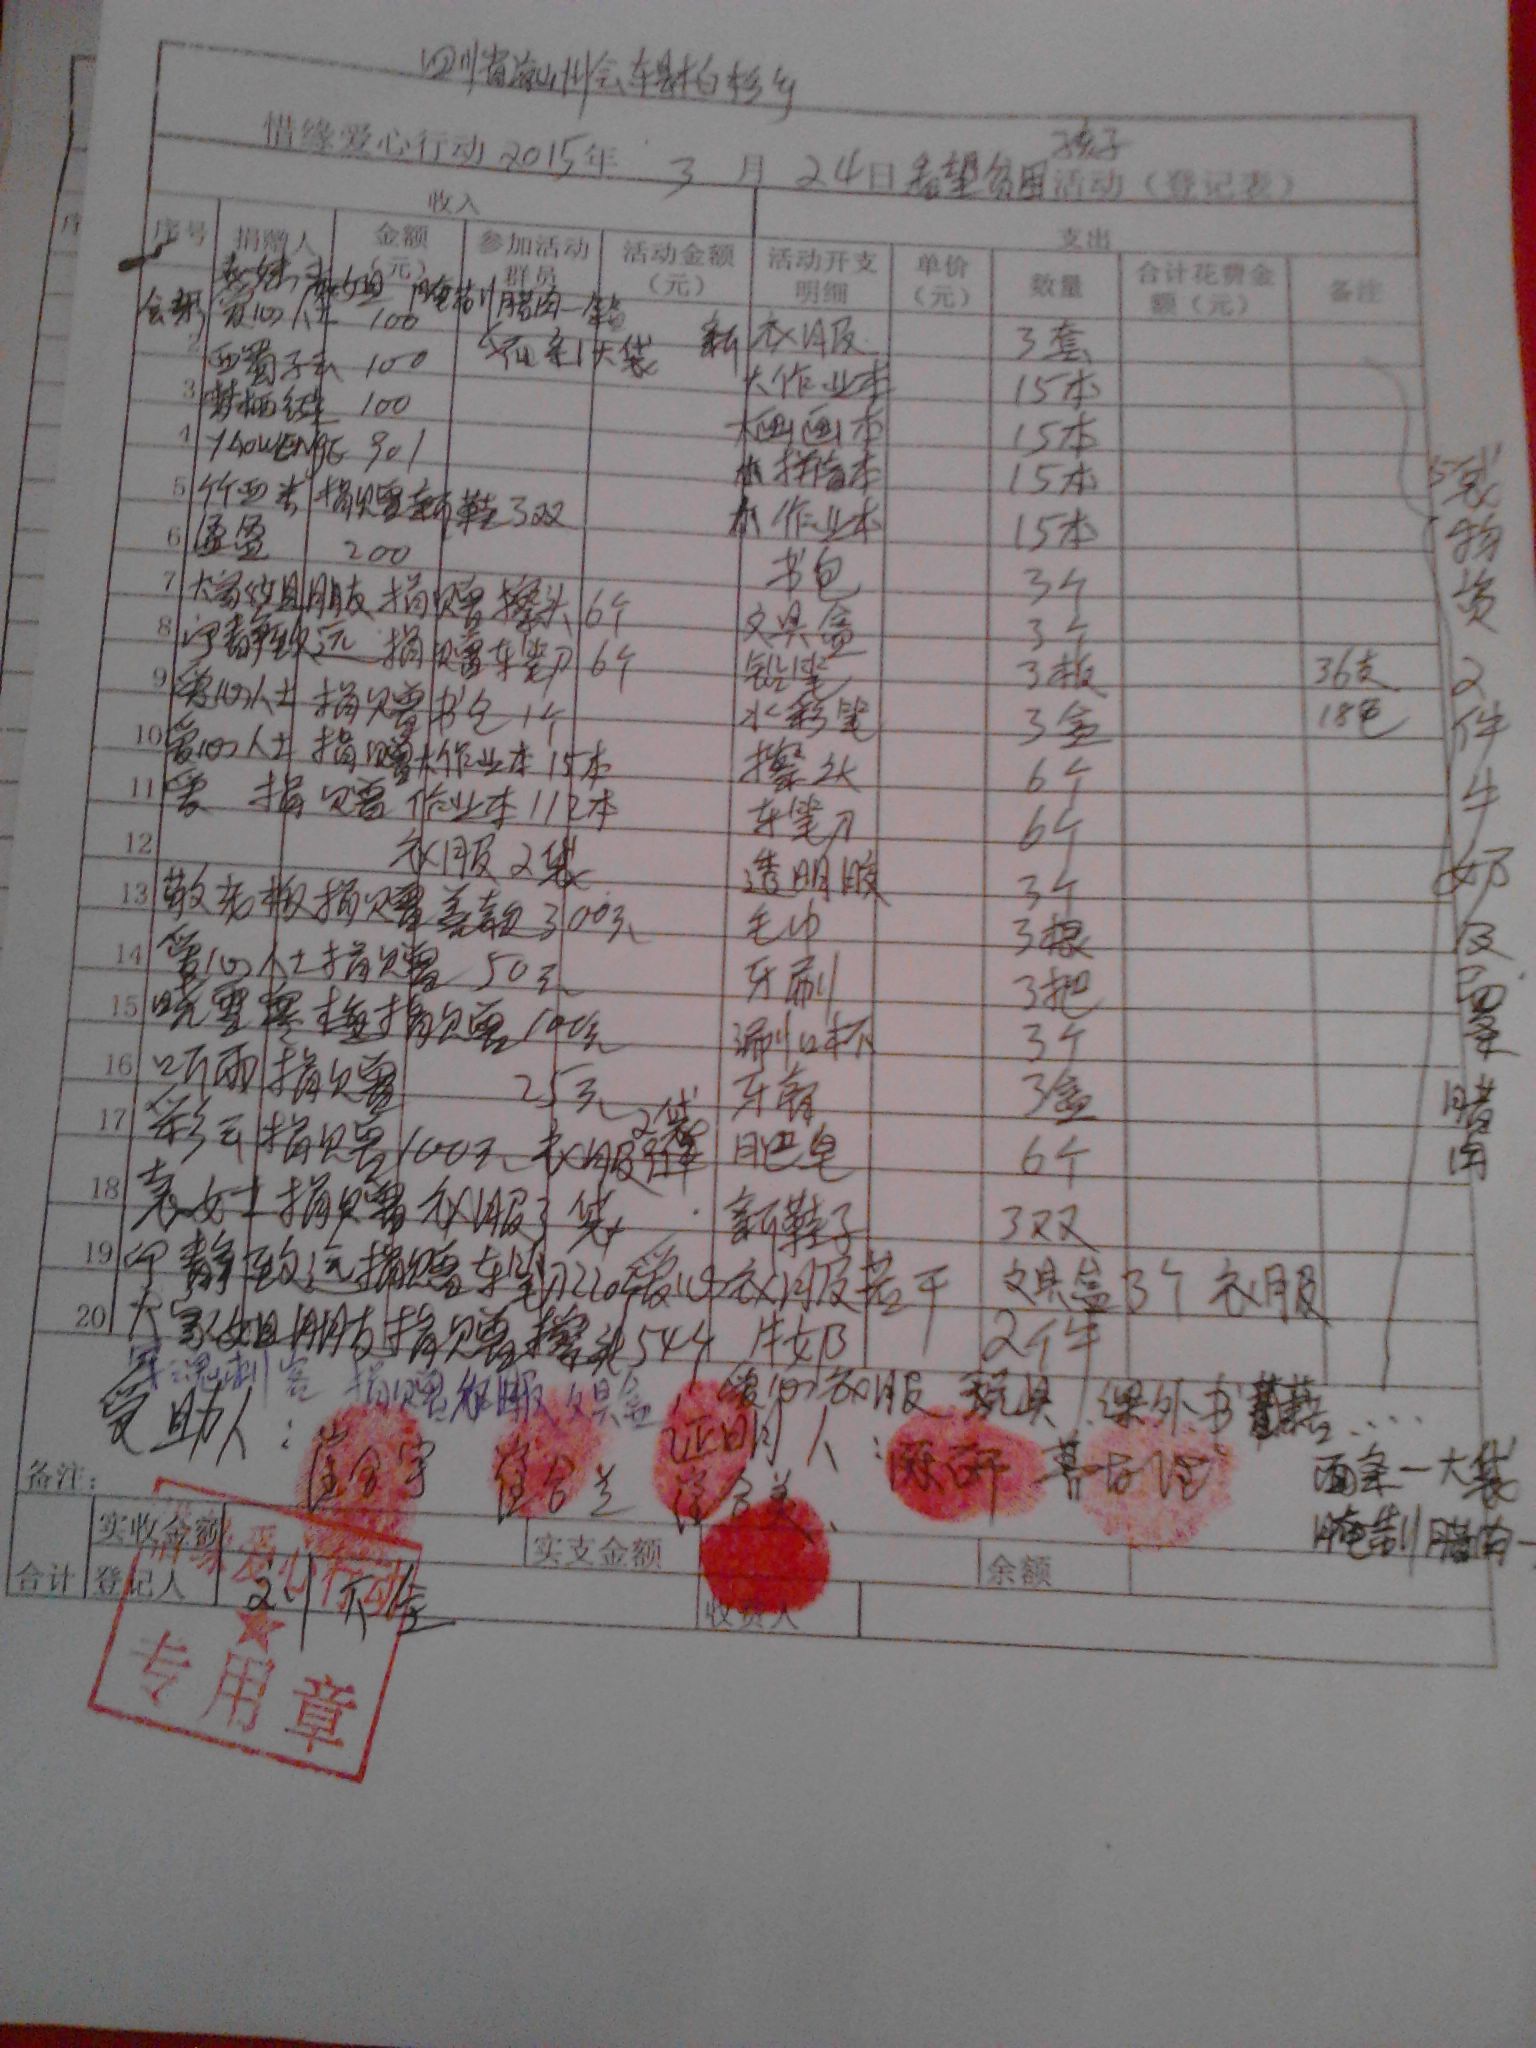 四川省凉山州会东县柏杉乡
惜缘爱心行动2015年 3 月 24日看望贫困孩子活动（登记表）
收入 支出
序号 捐赠人 金额（元） 参加活动群员 活动金额（元） 活动开支明细 单价（元） 数量 合计花费金额（元） 备注
腌制腊肉一
爱心人士 100 新衣服 3套
2 西蜀子云 100 1大袋 大作业本 15本
3 100 大画画本 15本
4 YAOWENGE 901 拼音本 15本
5 竹西 捐赠新鞋3双 作业本 15本
6 盈盈 200 书包 3个
7 大家姐朋友 捐赠擦头6个 文具盒 3个
8 宁静致远 捐赠车笔刀6个 铅笔 3板 36支
9 爱心人士 捐赠书包1个 水彩笔 3盒 18色
10 爱心人士 捐赠大作业本15本 擦头 6个
11 爱 捐赠作业本112本 车笔刀 6个
12 衣服2袋 透明胶 3个
13 敬老板捐赠善款300元 毛巾 3根
14 爱心人士捐赠 50元 牙刷 3把
15 晓雪寒梅捐赠100元 漱口杯 3个
16 听雨捐赠 25元 牙膏 3盒
17 彩云捐赠100元 衣服2袋 肥皂 6个
18 袁女士捐赠衣服3袋 新鞋子 3双
19 宁静致远捐赠车笔刀220个 爱心衣服若干 文具盒3个 衣服
20 大家姐朋友捐赠擦头544 牛奶 2件
捐赠衣服文具盒 爱心衣服 玩具 课外书
受助人： 证明人：
面条一大袋
腌制腊肉一
袋物资2件牛奶及面条腊肉
备注：
实收金额 实支金额 余额
合计 登记人 收费人
惜缘爱心行动
专用章